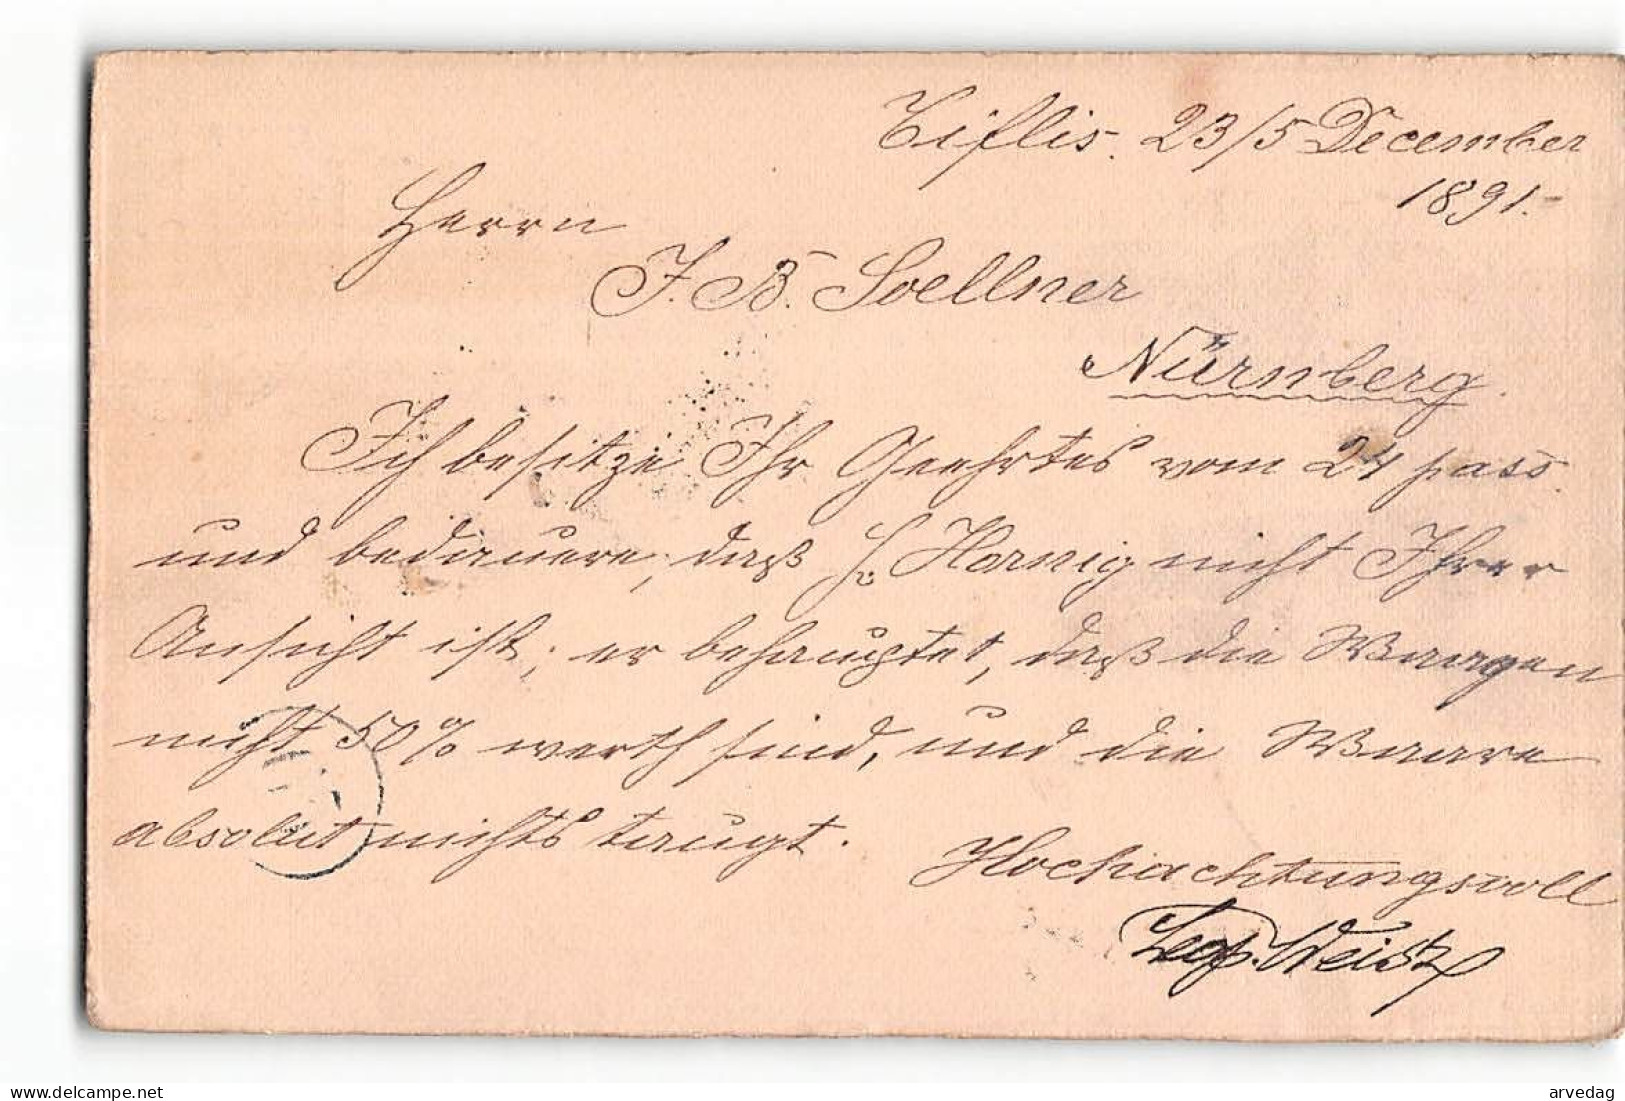 Tiflis. 23/5 December
1891.-
Herrn
J. B. Soellner
Nürnberg.
Ich besitze Ihr Geehrtes vom 24 pass.
und bedauere, daß H. Hornig nicht Ihrer
Ansicht ist; er behauptet, daß die Waagen
nicht 50% werth sind, und die Waare
absolut nichts taugt.
Hochachtungsvoll
Leop. Weisz
www.delcampe.net
arvedag